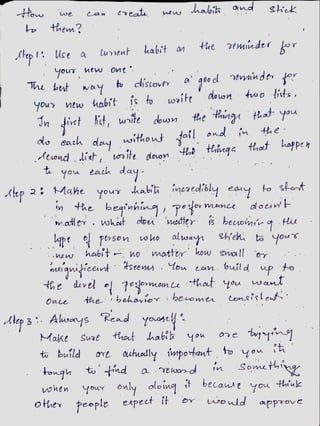 How we can create new habits and stick
to them?
Step 1: Use a current habit as the reminder for
your new one.
The best way to discover a good reminder for
your new habit is to write down two lists.
In first list, write down the things that you
do each day without fail and in the
second list, write down the things that happen
to you each day.
Step 2: Make your habits incredibly easy to start
in the beginning, performance doesn't
matter. what does matter is becoming the
type of person who always sticks to your
new habit - no matter how small or
insignificent it seems. You can build up to
the level of performance that you want
once the behavior becomes consistent.
Step 3: Always Read yourself:
Make sure that habits you are trying
to build are actually important to you it's
tough to find a reward in something
when your only doing it because you think
other people expect it or would approve